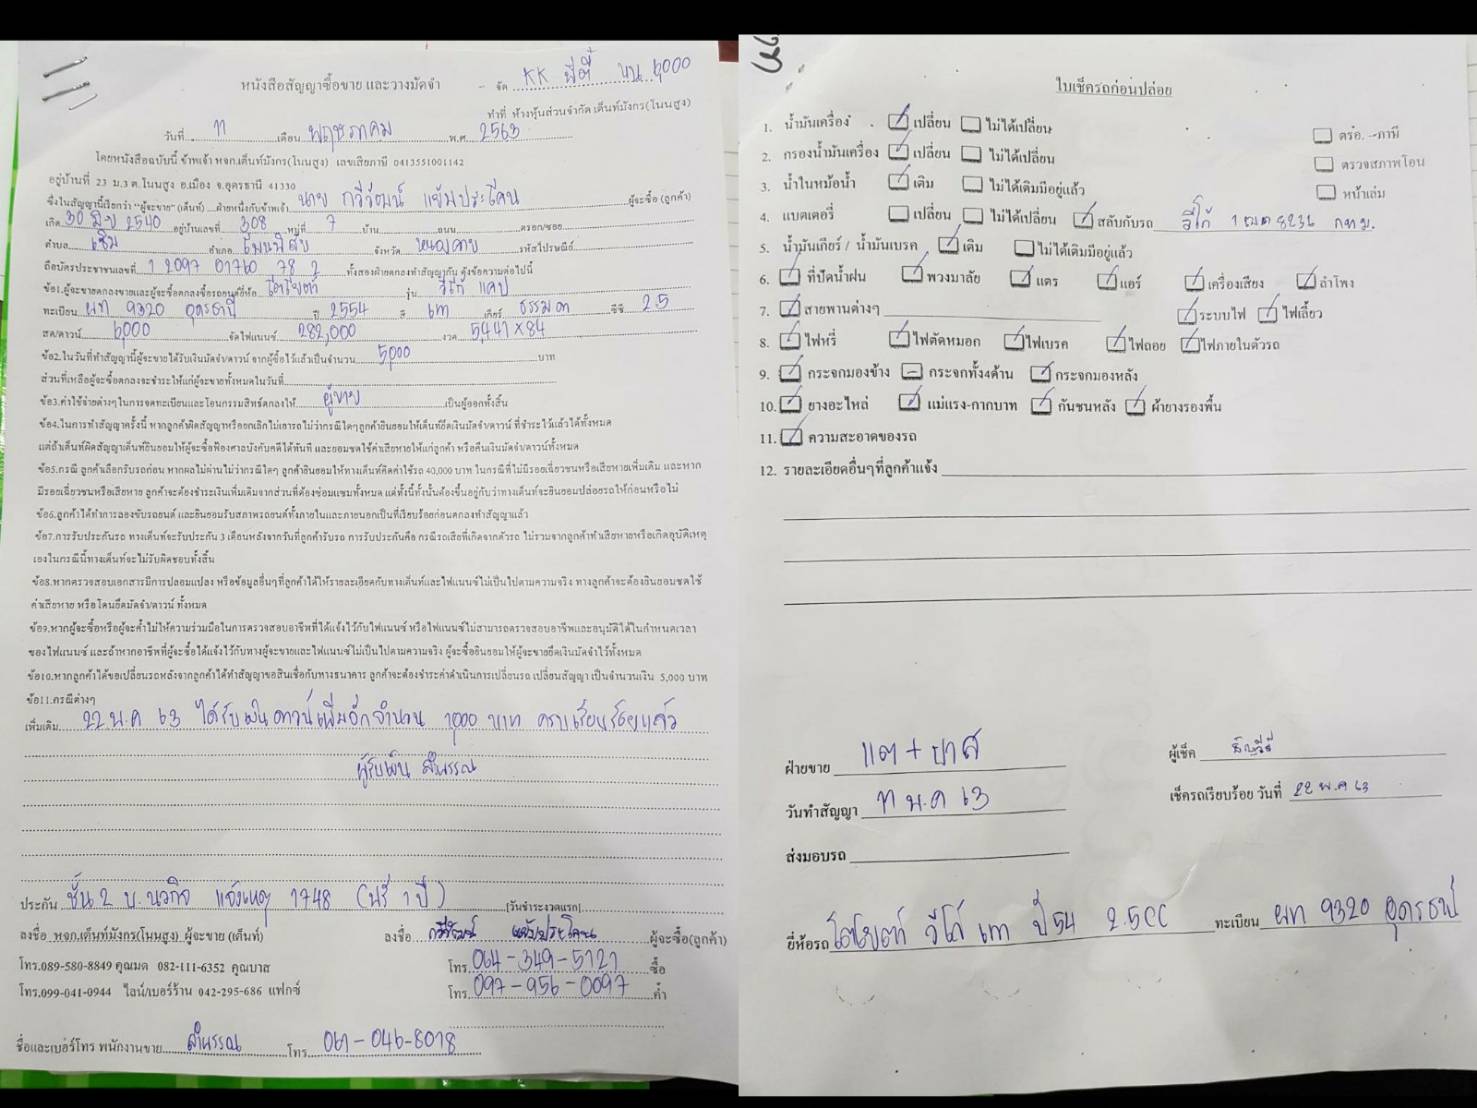 หนังสือสัญญาซื้อขาย และวางมัดจำ
- จัด KK พี่ตี๋ บน 6,000
ทำที่ ห้างหุ้นส่วนจำกัด เต็นท์มังกร(โนนสูง)
วันที่ 17 เดือน พฤษภาคม พ.ศ. 2563
โดยหนังสือฉบับนี้ ข้าพเจ้า หจก.เต็นท์มังกร(โนนสูง) เลขเสียภาษี 0413551001142
อยู่บ้านที่ 23 ม.3 ต.โนนสูง อ.เมือง จ.อุดรธานี 41330
ซึ่งในสัญญานี้เรียกว่า "ผู้จะขาย" (เต็นท์) ฝ่ายหนึ่งกับข้าพเจ้า นาย กวีวัฒน์ แย้มประโคน ผู้จะซื้อ (ลูกค้า)
เกิด 30 มิ.ย 2540 อยู่บ้านเลขที่ 308 หมู่ที่ 7 บ้าน ถนน ตรอก/ซอย
ตำบล เซิม อำเภอ โพนพิสัย จังหวัด หนองคาย รหัสไปรษณีย์
ถือบัตรประชาชนเลขที่ 1 2097 01760 78 2 ทั้งสองฝ่ายตกลงทำสัญญากัน ดังข้อความต่อไปนี้
ข้อ1.ผู้จะขายตกลงขายและผู้จะซื้อตกลงซื้อรถยนต์ยี่ห้อ โตโยต้า รุ่น วีโก้ แคป
ทะเบียน ผท 9320 อุดรธานี ปี 2554 สี เทา เกียร์ ธรรมดา ซีซี 2.5
สด/ดาวน์ 6,000 จัดไฟแนนซ์ 282,000 งวด 5,441 x 84
ข้อ2.ในวันที่ทำสัญญานี้ผู้จะขายได้รับเงินมัดจำ/ดาวน์ จากผู้ซื้อไว้แล้วเป็นจำนวน 5,000 บาท
ส่วนที่เหลือผู้จะซื้อตกลงจะชำระให้แก่ผู้จะขายทั้งหมดในวันที่
ข้อ3.ค่าใช้จ่ายต่างๆในการจดทะเบียนและโอนกรรมสิทธ์ตกลงให้ ผู้ขาย เป็นผู้ออกทั้งสิ้น
ข้อ4.ในการทำสัญญาครั้งนี้ หากลูกค้าผิดสัญญาหรือยกเลิกไม่เอารถไม่ว่ากรณีใดๆลูกค้ายินยอมให้เต็นท์ยึดเงินมัดจำ/ดาวน์ ที่ชำระไว้แล้วได้ทั้งหมด
แต่ถ้าเต็นท์ผิดสัญญาเต็นท์ยินยอมให้ผู้จะซื้อฟ้องศาลบังคับคดีได้ทันที และยอมชดใช้ค่าเสียหายให้แก่ลูกค้า หรือคืนเงินมัดจำ/ดาวน์ทั้งหมด
ข้อ5.กรณี ลูกค้าเลือกรับรถก่อน หากผลไม่ผ่านไม่ว่ากรณีใดๆ ลูกค้ายินยอมให้ทางเต็นท์คิดค่าใช้รถ 40,000 บาท ในกรณีที่ไม่มีรอยเฉี่ยวชนหรือเสียหายเพิ่มเติม และหาก
มีรอยเฉี่ยวชนหรือเสียหาย ลูกค้าจะต้องชำระเงินเพิ่มเติมจากส่วนที่ต้องซ่อมแซมทั้งหมด แต่ทั้งนี้ทั้งนั้นต้องขึ้นอยู่กับว่าทางเต็นท์จะยินยอมปล่อยรถให้ก่อนหรือไม่
ข้อ6.ลูกค้าได้ทำการลองขับรถยนต์ และยินยอมรับสภาพรถยนต์ทั้งภายในและภายนอกเป็นที่เรียบร้อยก่อนตกลงทำสัญญาแล้ว
ข้อ7.การรับประกันรถ ทางเต็นท์จะรับประกัน 3 เดือนหลังจากวันที่ลูกค้ารับรถ การรับประกันคือ กรณีรถเสียที่เกิดจากตัวรถ ไม่รวมจากลูกค้าทำเสียหายหรือเกิดอุบัติเหตุ
เองในกรณีนี้ทางเต็นท์จะไม่รับผิดชอบทั้งสิ้น
ข้อ8.หากตรวจสอบเอกสารมีการปลอมแปลง หรือข้อมูลอื่นๆที่ลูกค้าได้ให้รายละเอียดกับทางเต็นท์และไฟแนนซ์ไม่เป็นไปตามความจริง ทางลูกค้าจะต้องยินยอมชดใช้
ค่าเสียหาย หรือโดนยึดมัดจำ/ดาวน์ ทั้งหมด
ข้อ9.หากผู้จะซื้อหรือผู้จะค้ำไม่ให้ความร่วมมือในการตรวจสอบอาชีพที่ได้แจ้งไว้กับไฟแนนซ์ หรือไฟแนนซ์ไม่สามารถตรวจสอบอาชีพและอนุมัติได้ในกำหนดเวลา
ของไฟแนนซ์ และถ้าหากอาชีพที่ผู้จะซื้อได้แจ้งไว้กับทางผู้จะขายและไฟแนนซ์ไม่เป็นไปตามความจริง ผู้จะซื้อยินยอมให้ผู้จะขายยึดเงินมัดจำไว้ทั้งหมด
ข้อ10.หากลูกค้าได้ขอเปลี่ยนรถหลังจากลูกค้าได้ทำสัญญาขอสินเชื่อกับทางธนาคาร ลูกค้าจะต้องชำระค่าดำเนินการเปลี่ยนรถ เปลี่ยนสัญญา เป็นจำนวนเงิน 5,000 บาท
ข้อ11.กรณีต่างๆ
เพิ่มเติม 22 พ.ค 63 ได้รับเงินดาวน์เพิ่มอีกจำนวน 1,000 บาท ครบเรียบร้อยแล้ว
ผู้รับเงิน ลำพรรณ
ประกัน ชั้น 2 บ.นวกิจ แจ้งเหตุ 1748 (ฟรี 1 ปี) [วันชำระงวดแรก]
ลงชื่อ หจก.เต็นท์มังกร(โนนสูง) ผู้จะขาย (เต็นท์) ลงชื่อ กวีวัฒน์ แย้มประโคน ผู้จะซื้อ(ลูกค้า)
โทร.089-580-8849 คุณมด 082-111-6352 คุณบาส โทร. 064-349-5121 ซื้อ
โทร.099-041-0944 ไลน์/เบอร์ร้าน 042-295-686 แฟกซ์ โทร. 097-956-0097 ค้ำ
ชื่อและเบอร์โทร พนักงานขาย ลำพรรณ โทร. 061-046-8078
ใบเช็ครถก่อนปล่อย
1. น้ำมันเครื่อง เปลี่ยน ไม่ได้เปลี่ยน ตรอ.-ภาษี
2. กรองน้ำมันเครื่อง เปลี่ยน ไม่ได้เปลี่ยน ตรวจสภาพโอน
3. น้ำในหม้อน้ำ เติม ไม่ได้เติมมีอยู่แล้ว หน้าเล่ม
4. แบตเตอรี่ เปลี่ยน ไม่ได้เปลี่ยน สลับกับรถ วีโก้ 1ฒต 8236 กทม.
5. น้ำมันเกียร์ / น้ำมันเบรค เติม ไม่ได้เติมมีอยู่แล้ว
6. ที่ปัดน้ำฝน พวงมาลัย แตร แอร์ เครื่องเสียง ลำโพง
7. สายพานต่างๆ ระบบไฟ ไฟเลี้ยว
8. ไฟหรี่ ไฟตัดหมอก ไฟเบรค ไฟถอย ไฟภายในตัวรถ
9. กระจกมองข้าง กระจกทั้ง4ด้าน กระจกมองหลัง
10. ยางอะไหล่ แม่แรง-กากบาท กันชนหลัง ผ้ายางรองพื้น
11. ความสะอาดของรถ
12. รายละเอียดอื่นๆที่ลูกค้าแจ้ง
ฝ่ายขาย แต + ปาล์ ผู้เช็ค
วันทำสัญญา 17 พ.ค 63 เช็ครถเรียบร้อย วันที่ 22 พ.ค 63
ส่งมอบรถ
ยี่ห้อรถ โตโยต้า วีโก้ เทา ปี 54 2.5CC ทะเบียน ผท 9320 อุดรธานี